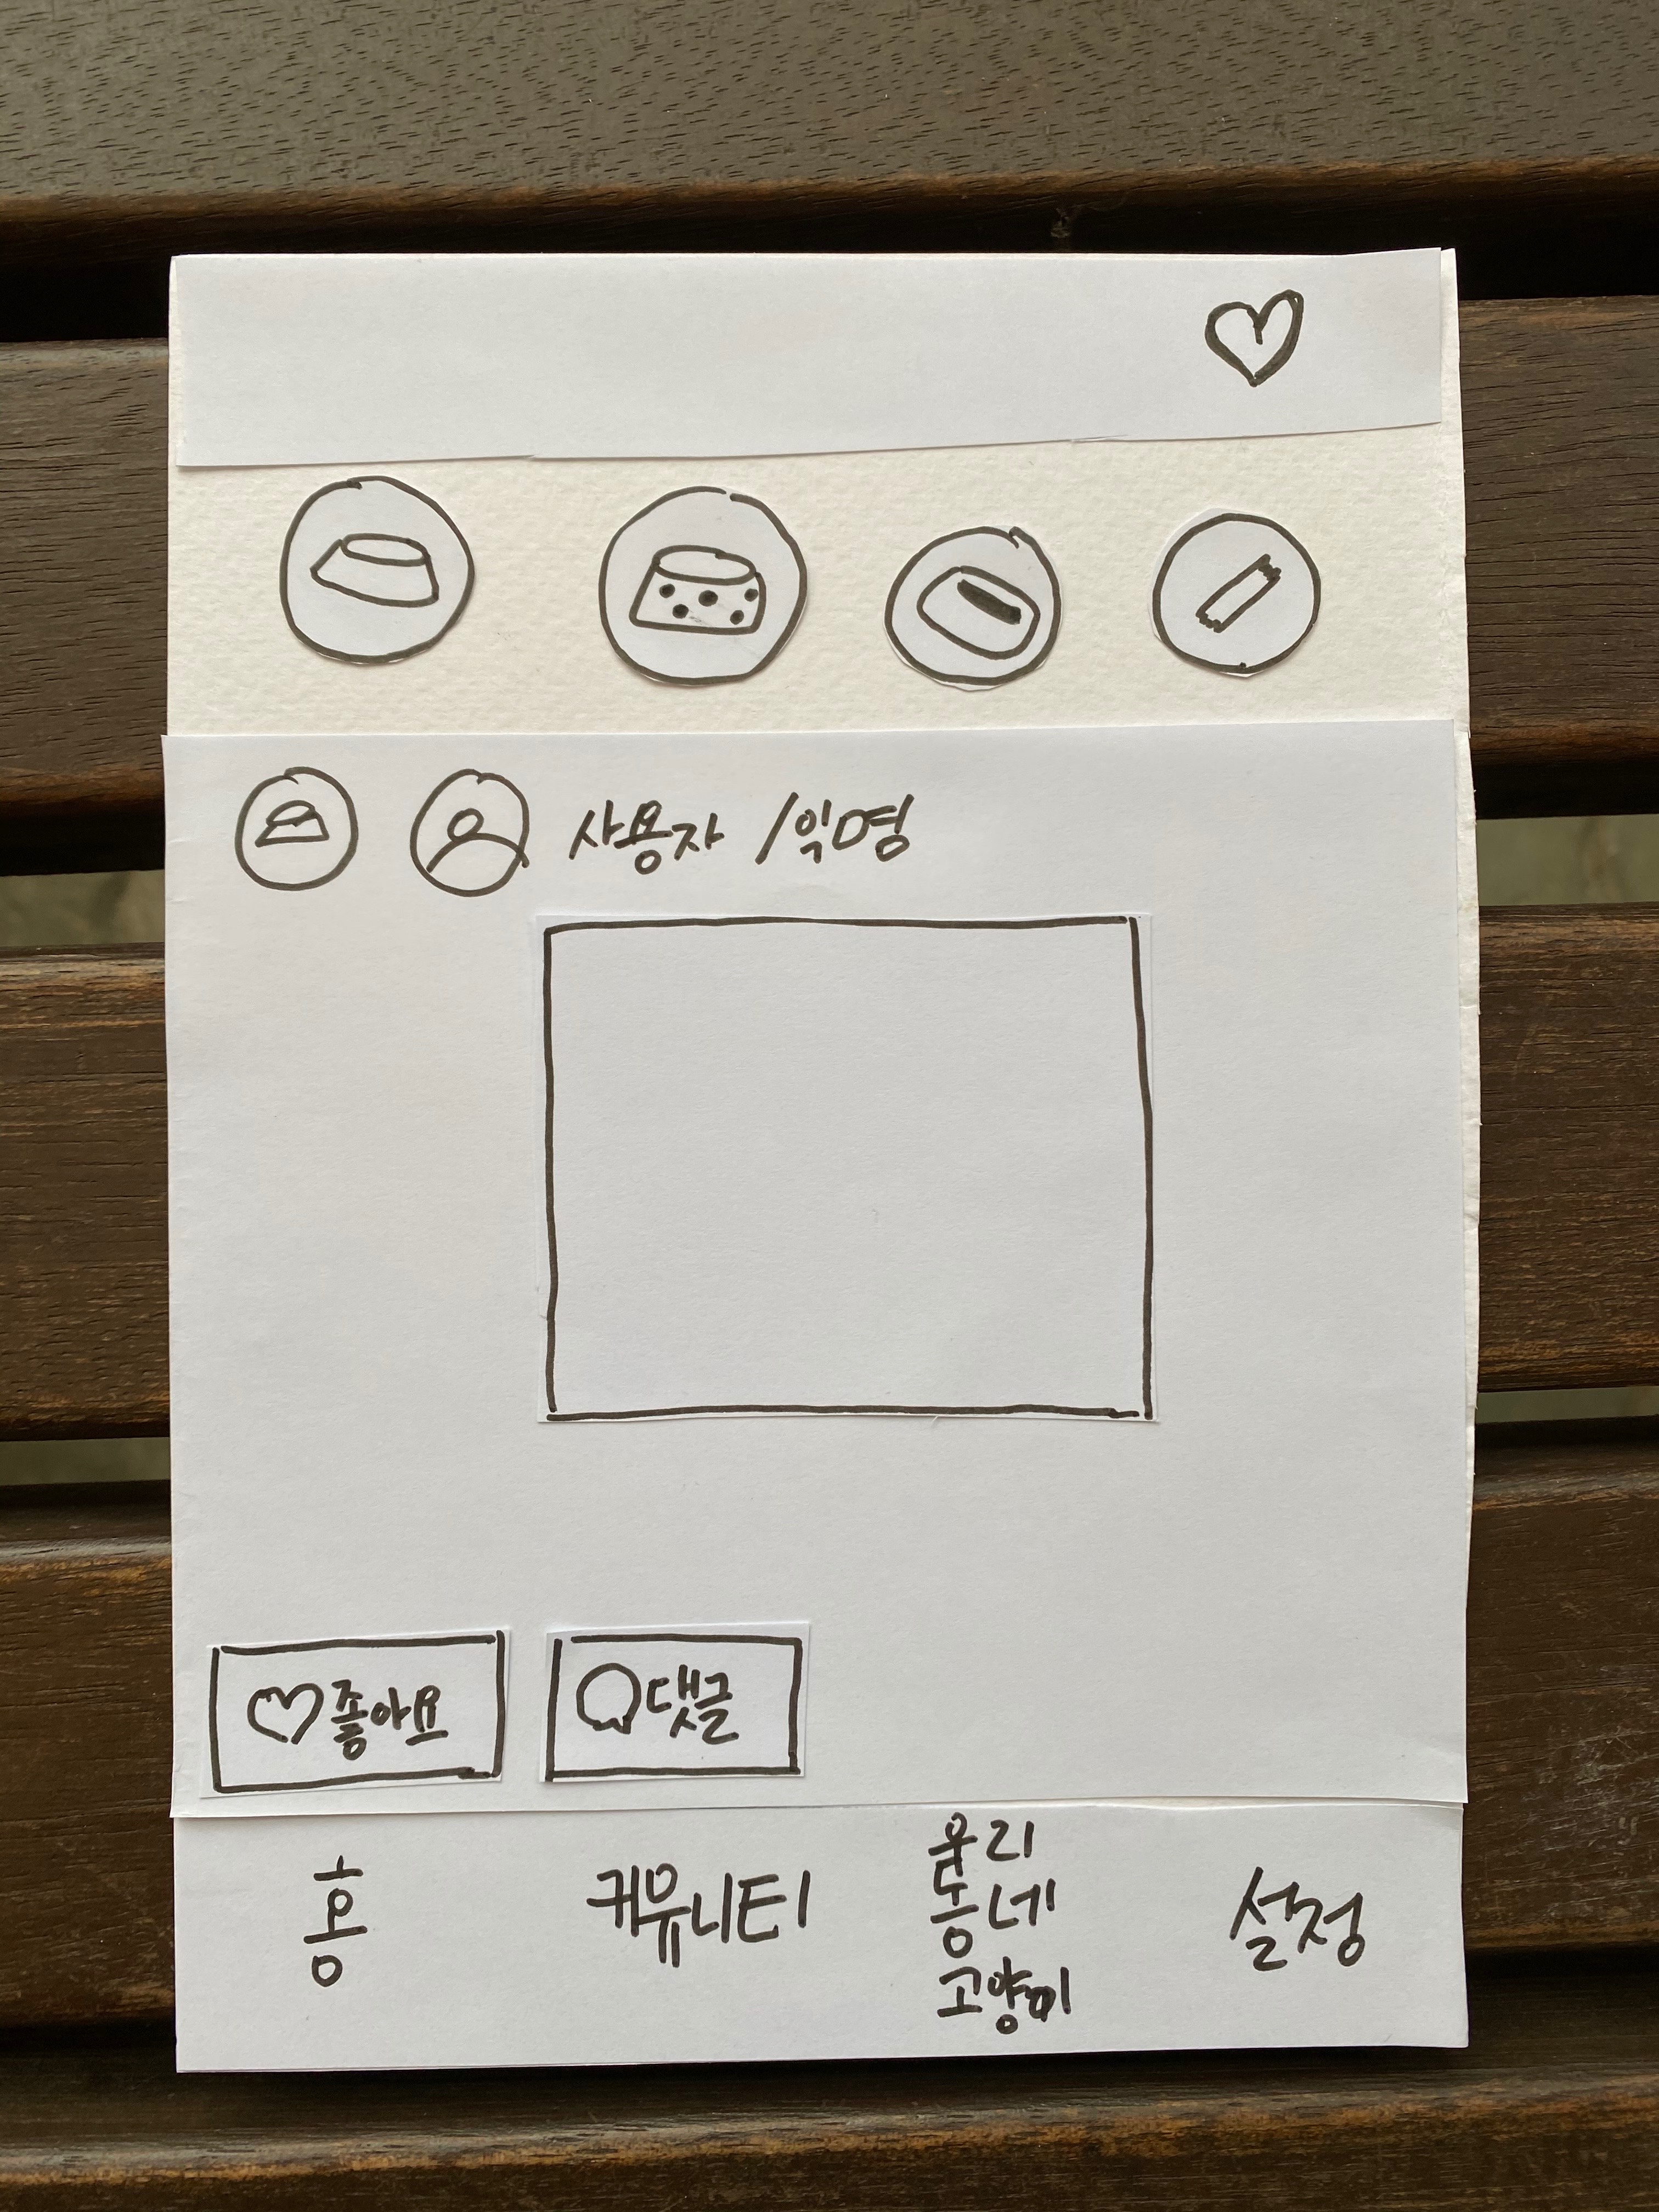 사용자 /익명
좋아요
댓글
홈
커뮤니티
우리
동네
고양이
설정